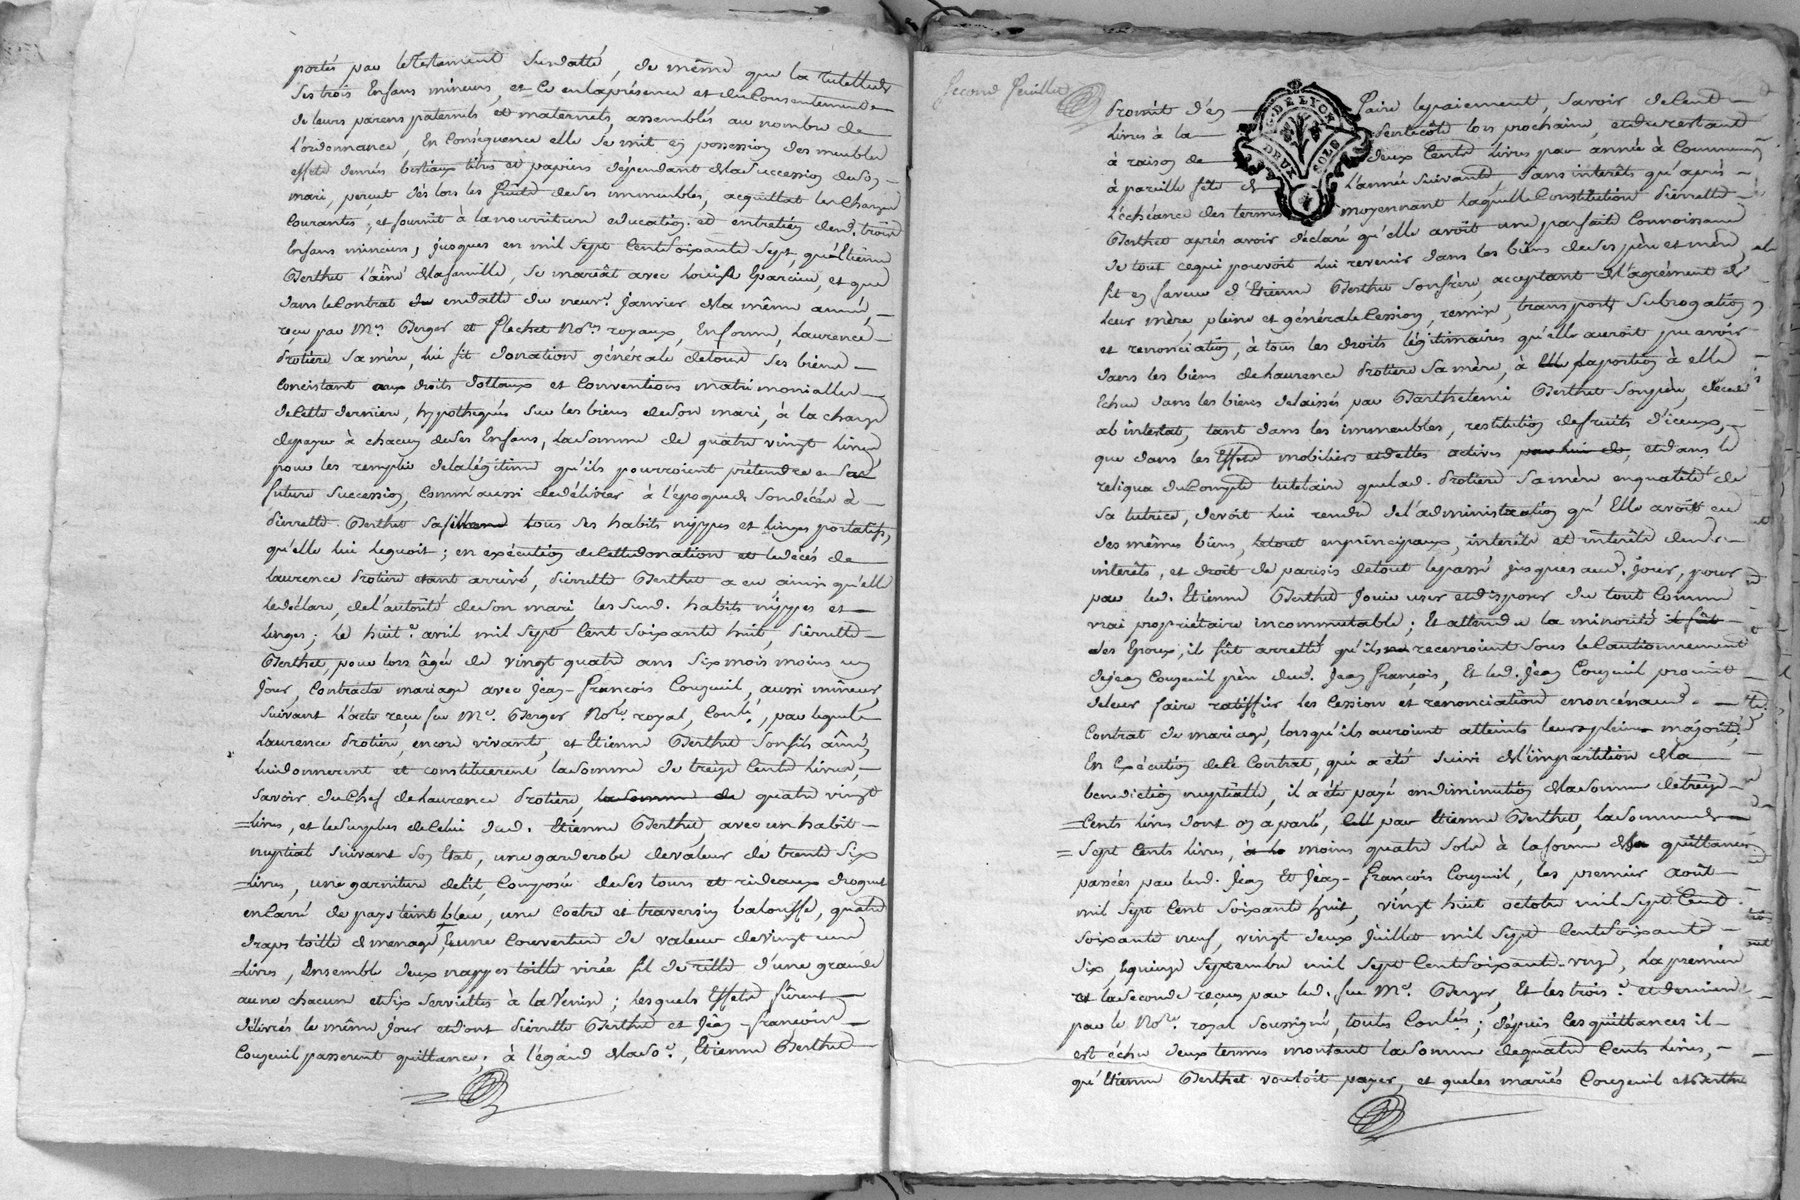 portés par le testament susdatté, de même que la tutelle de
ses trois Enfans mineurs, et ce en la présence et du Consentement
de leurs parens paternels et maternels, assemblés au nombre de
l'ordonnance, En Conséquence elle se mit en possession des meubles
effets denrés bestiaux titres et papiers dépendant de la Succession de son
mari, perçut dés lors les fruits de ses immeubles, acquittat les Charges
Courantes, et fournit à la nourriture education et entretien desd. trois
Enfans mineurs, jusques en mil Sept Cent Soixante Sept, qu'Etienne
Berthet l'aîné de la famille, se mariât avec Louise Eparcieu, et que
dans le Contrat en datte du neuf. Janvier de la même année,
reçu par Mes. Berger et flechet Nores. royaux, En forme, Laurence
Drotière sa mère, lui fit donation générale de tous ses biens
Concistant aux droits dottaux et Conventions matrimonialles
de cette derniere, hypothequés sur les biens de son mari, à la charge
de payer à chacun de ses Enfans, la Somme de quatre vingt Livres
pour les remplir de la légitime qu'ils pourroient prétendre en sa
future Succession, Comm'aussi de délivrer à l'époque de son décés à
Pierrette Berthet sa fille tous ses habits nippes et linges portatifs,
qu'elle lui leguoit; en exécution de cette donation et le décés de
Laurence Drotière etant arrivé, Pierrette Berthet a eu ainsi qu'elle
le déclare, de l'autorité de son mari, les Susd. habits nippes et
linges; le huite. avril mil Sept Cent Soixante huit, Pierrette
Berthet, pour lors âgée de vingt quatre ans Six mois moins un
Jour, Contracta mariage avec Jean-François Couzeuil, aussi mineur,
suivant l'acte reçu feu Me. Berger Nore. royal, Conlé., par lequel
Laurence Drotière, encore vivante, et Etienne Berthet son fils aîné,
lui donnerent et constituerent la somme de treize Cents Livres,
savoir du Chef de Laurence Drotière, la somme de quatre vingt
Livres, et le Surplus de Celui dud. Etienne Berthet, avec un habit
nuptial suivant son Etat, une garderobe de valeur de trente Six
Livres, une garniture de lit, Composée de ses tours et rideaux droguet
en Carré de pays teint bleu, une Coetre et traversin balouffe, quatre
draps toille de menage, et une Couverture de valeur de vingt une
Livres, Ensemble deux nappes toille virée fil de ritte d'une grande
aune chacune et Six Serviettes à la Venise; lesquels Effets furent
délivrés le même Jour et dont Pierrette Berthet et Jean-François
Couzeuil passerent quittance; à l'égard de la Soe., Etienne Berthet
Second feuillet
Promit d'en faire le paiement, Savoir de Cent
Livres à la Pentecôte lors prochaine, et du restant
à raison de deux Cents Livres par année à Commencer
à pareille fête de l'année suivante sans interêts qu'aprés
L'échéance des termes moyennant laquelle Constitution Pierrette
DE LYON
DEUX SOLS
Berthet aprés avoir déclaré qu'elle avoit une parfaite Connoissance
de tout ce qui pouvoit lui revenir dans les biens de ses père et mère, elle
fit en faveur d'Etienne Berthet Son frère, acceptant de l'agrément de
leur mère, pleine et générale Cession, remise, transport, Subrogation
et renonciation, à tous les droits légitimaires qu'elle auroit pu avoir
dans les biens de Laurence Drotière sa mère, à la portion à elle
Echue dans les biens délaissés par Barthelemi Berthet son père, décédé
ab intestat, tant dans les immeubles, restitution de fruits d'iceux,
que dans les Effets mobiliers et dettes actives, et dans le
reliqua du Compte tutelaire que lad. Drotière sa mère en qualité de
Sa tutrice, devoit lui rendre de l'administration qu'Elle avoit eu
des mêmes biens, le tout en principaux, interêts et interêts des
interêts, et droit de parisis de tout le passé jusques aud. Jour, pour
par led. Etienne Berthet Jouir user et disposer du tout Comme
vrai propriétaire incommutable; Et attendu la minorité
des Epoux, il fût arretté qu'ils recevroient sous le Cautionnement
de Jean Couzeuil père dud. Jean François, Et led. Jean Couzeuil promit
de leur faire ratiffier les Cession et renonciation enoncés aud.
Contrat de mariage, lorsqu'ils auroient atteints leurs pleine majorité;
En Exécution de Ce Contrat, qui a été suivi de l'impartition de la
bénédiction nuptiale, il a été payé en diminution de la somme de treize
Cents Livres dont on a parlé, par Etienne Berthet, la Somme de
Sept Cents Livres, moins quatre Sols à la forme de quittances
passées par lesd. Jean Et Jean-François Couzeuil, les premier Août
mil Sept Cent Soixante huit, vingt huit octobre mil Sept Cent
Soixante neuf, vingt deux Juillet mil Sept Cent Soixante
dix, Equinze Septembre mil Sept Cent Soixante-onze, La premiere
et la Seconde reçus par led. feu Me. Berger, Et les troise. et dernière
par le Nore. royal Soussigné, toutes Conlés; depuis les quittances il
est échu deux termes montant la Somme de quatre Cents Livres,
qu'Etienne Berthet vouloit payer, et que les mariés Couzeuil et Berthet